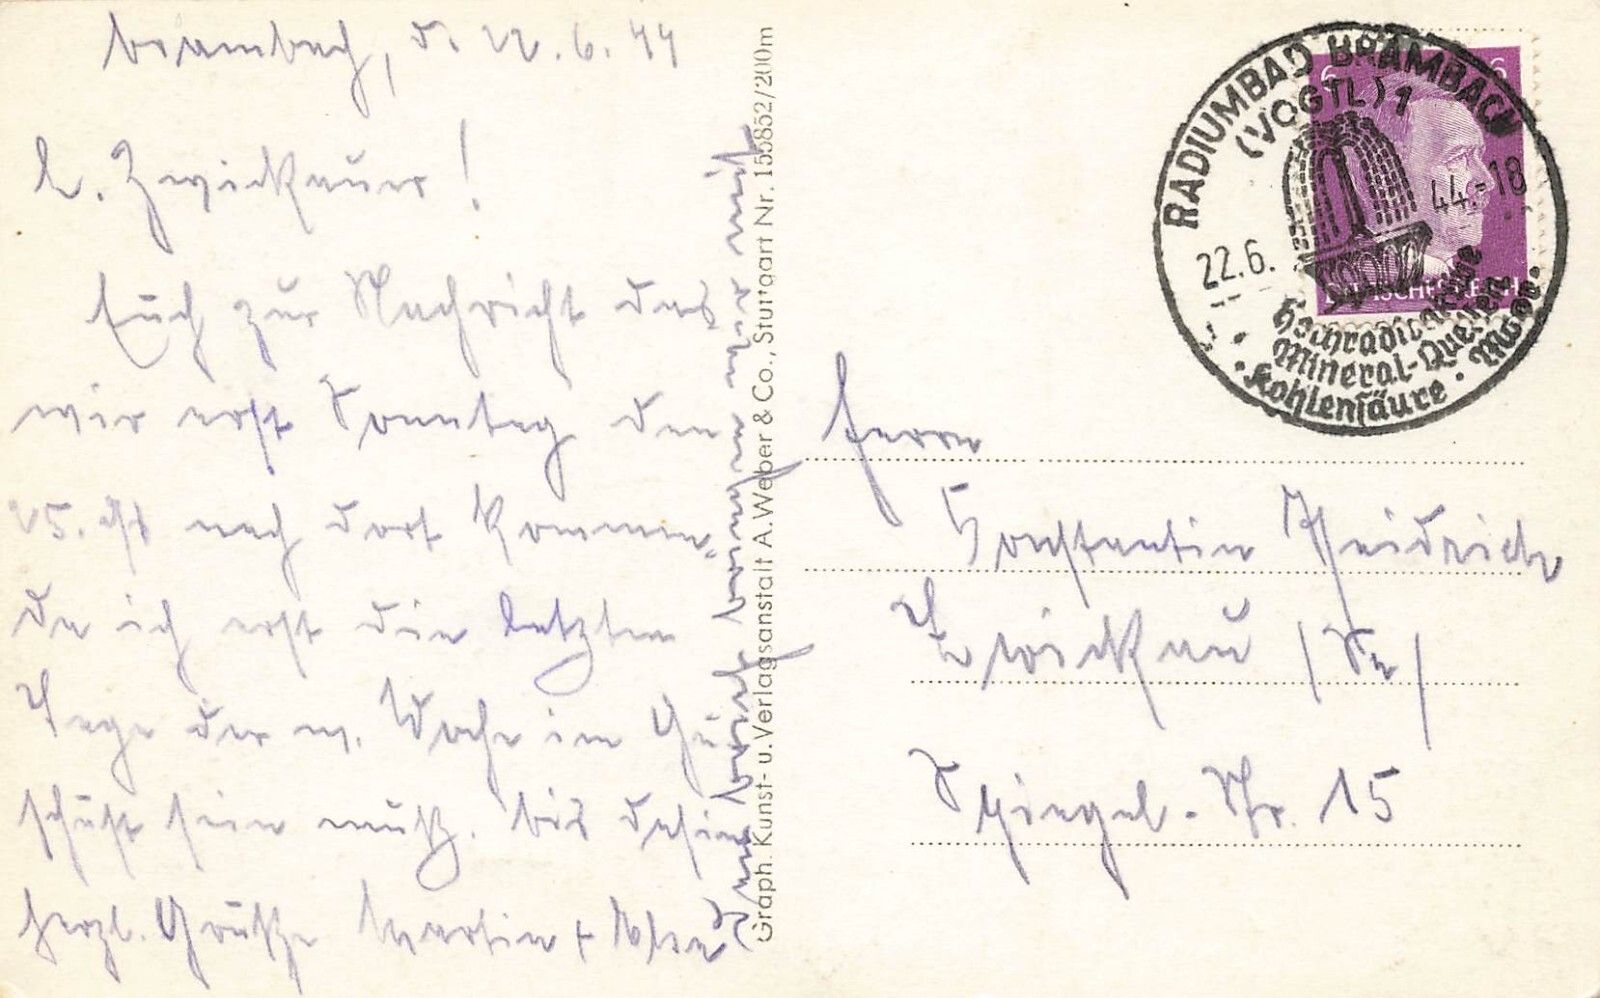 Brambach, d. 22.6.44
L. Zwickauer!
Euch zur Nachricht das
wir erst Sonntag den
25. ds nach dort kommen,
da ich erst die letzten
Tage der n. Woche im Ge-
schäft sein muß. bis dahin
herzl. Grüße Martin +
bringen wir mit
Graph. Kunst- u. Verlagsanstalt A. Weber & Co., Stuttgart Nr. 155852/200m
RADIUMBAD BRAMBACH
(VOGTL) 1
22.6. 44.-18
Hochradioaktive
Mineral-Quellen
Kohlensäure · Moor
6 6
DEUTSCHES REICH
Herrn
Konstantin Heidrich
Zwickau /Sa/
Spiegel-Str. 15